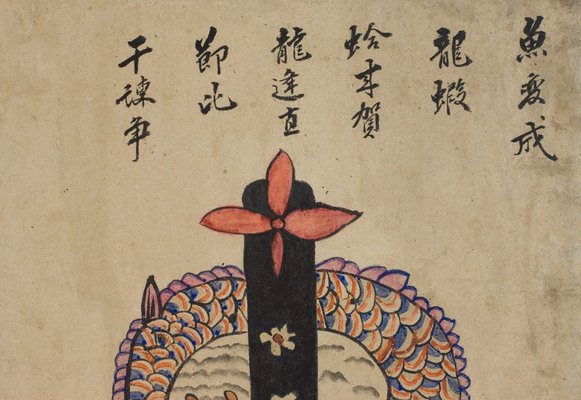 魚変成
龍蝦
蛤来賀
龍逄直
節比
干諫争